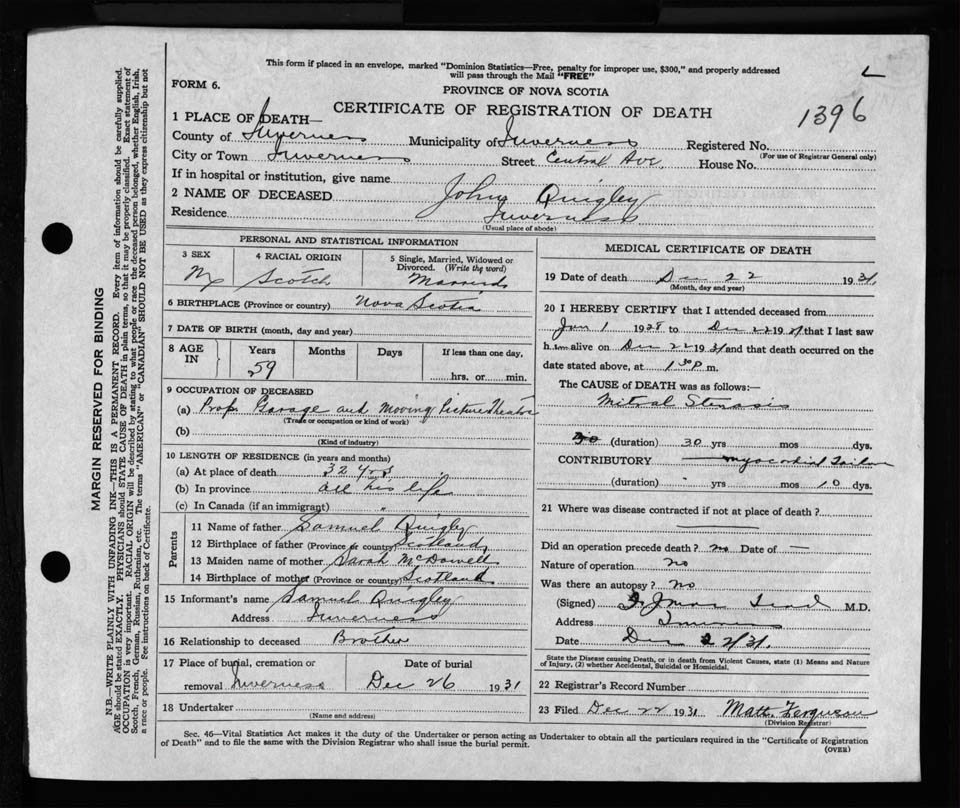 This form if placed in an envelope, marked "Dominion Statistics—Free, penalty for improper use, $300," and properly addressed
will pass through the Mail "FREE"
FORM 6.
PROVINCE OF NOVA SCOTIA
CERTIFICATE OF REGISTRATION OF DEATH
1396
1 PLACE OF DEATH—
County of Inverness Municipality of Inverness Registered No.
(For use of Registrar General only)
City or Town Inverness Street Central Ave House No.
If in hospital or institution, give name
2 NAME OF DECEASED John Quigley
Residence Inverness
(Usual place of abode)
PERSONAL AND STATISTICAL INFORMATION
3 SEX 4 RACIAL ORIGIN 5 Single, Married, Widowed or
Divorced. (Write the word)
M Scotch Married
6 BIRTHPLACE (Province or country) Nova Scotia
7 DATE OF BIRTH (month, day and year)
8 AGE IN Years Months Days If less than one day,
59 hrs. or min.
9 OCCUPATION OF DECEASED
(a) Prop. Garage and Moving Picture Theatre
(Trade or occupation or kind of work)
(b)
(Kind of industry)
10 LENGTH OF RESIDENCE (in years and months)
(a) At place of death 32 yrs
(b) In province all his life
(c) In Canada (if an immigrant) "
Parents
11 Name of father Samuel Quigley
12 Birthplace of father (Province or country) Scotland
13 Maiden name of mother Sarah McDowell
14 Birthplace of mother (Province or country) Scotland
15 Informant's name Samuel Quigley
Address Inverness
16 Relationship to deceased Brother
17 Place of burial, cremation or Date of burial
removal Inverness Dec 26 1931
18 Undertaker
(Name and address)
MEDICAL CERTIFICATE OF DEATH
19 Date of death Dec 22 1931
(Month, day and year)
20 I HEREBY CERTIFY that I attended deceased from
Jan 1 1928 to Dec 22 1931 that I last saw
him alive on Dec 22 1931 and that death occurred on the
date stated above, at 1 30 p m.
The CAUSE of DEATH was as follows:—
Mitral Stenosis
(duration) 30 yrs mos dys.
CONTRIBUTORY myocardial Failure
(duration) yrs mos 10 dys.
21 Where was disease contracted if not at place of death?
Did an operation precede death? no Date of —
Nature of operation no
Was there an autopsy? no
(Signed) M.D.
Address Inverness
Date Dec 22/31.
State the Disease causing Death, or in death from Violent Causes, state (1) Means and Nature
of Injury, (2) whether Accidental, Suicidal or Homicidal.
22 Registrar's Record Number
23 Filed Dec 22 1931 Matt. Ferguson
(Division Registrar)
Sec. 46—Vital Statistics Act makes it the duty of the Undertaker or person acting as Undertaker to obtain all the particulars required in the "Certificate of Registration
of Death" and to file the same with the Division Registrar who shall issue the burial permit.
(OVER)
MARGIN RESERVED FOR BINDING
N.B.—WRITE PLAINLY WITH UNFADING INK—THIS IS A PERMANENT RECORD. Every item of information should be carefully supplied.
AGE should be stated EXACTLY. PHYSICIANS should STATE CAUSE OF DEATH in plain terms, so that it may be properly classified. Exact statement of
OCCUPATION is very important. RACIAL ORIGIN will be described by stating to what people or race the deceased person belonged, whether English, Irish,
Scotch, French, German, Russian, Ruthenian, etc. The terms "AMERICAN" or "CANADIAN" SHOULD NOT BE USED as they express citizenship but not
a race or people. See instructions on back of Certificate.